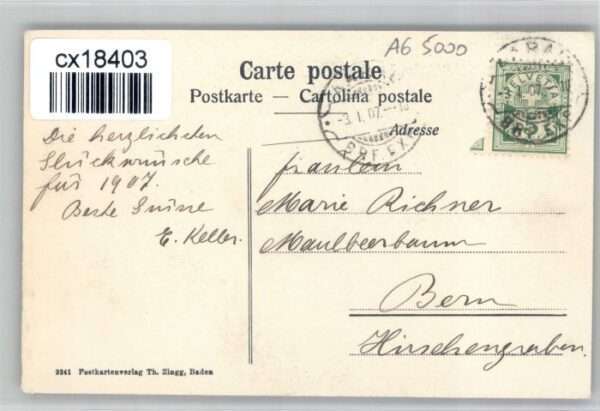 cx18403
AG 5000
Carte postale
Postkarte — Cartolina postale
Adresse
AARAU
HELVETIA
-3.I.07.-
BRF.EXP.
Die herzlichsten
Glückwünsche
für 1907.
Beste Grüsse
E. Keller.
Fräulein
Marie Richner
Maulbeerbaum
Bern
Hirschengraben.
3341 Postkartenverlag Th. Zingg, Baden